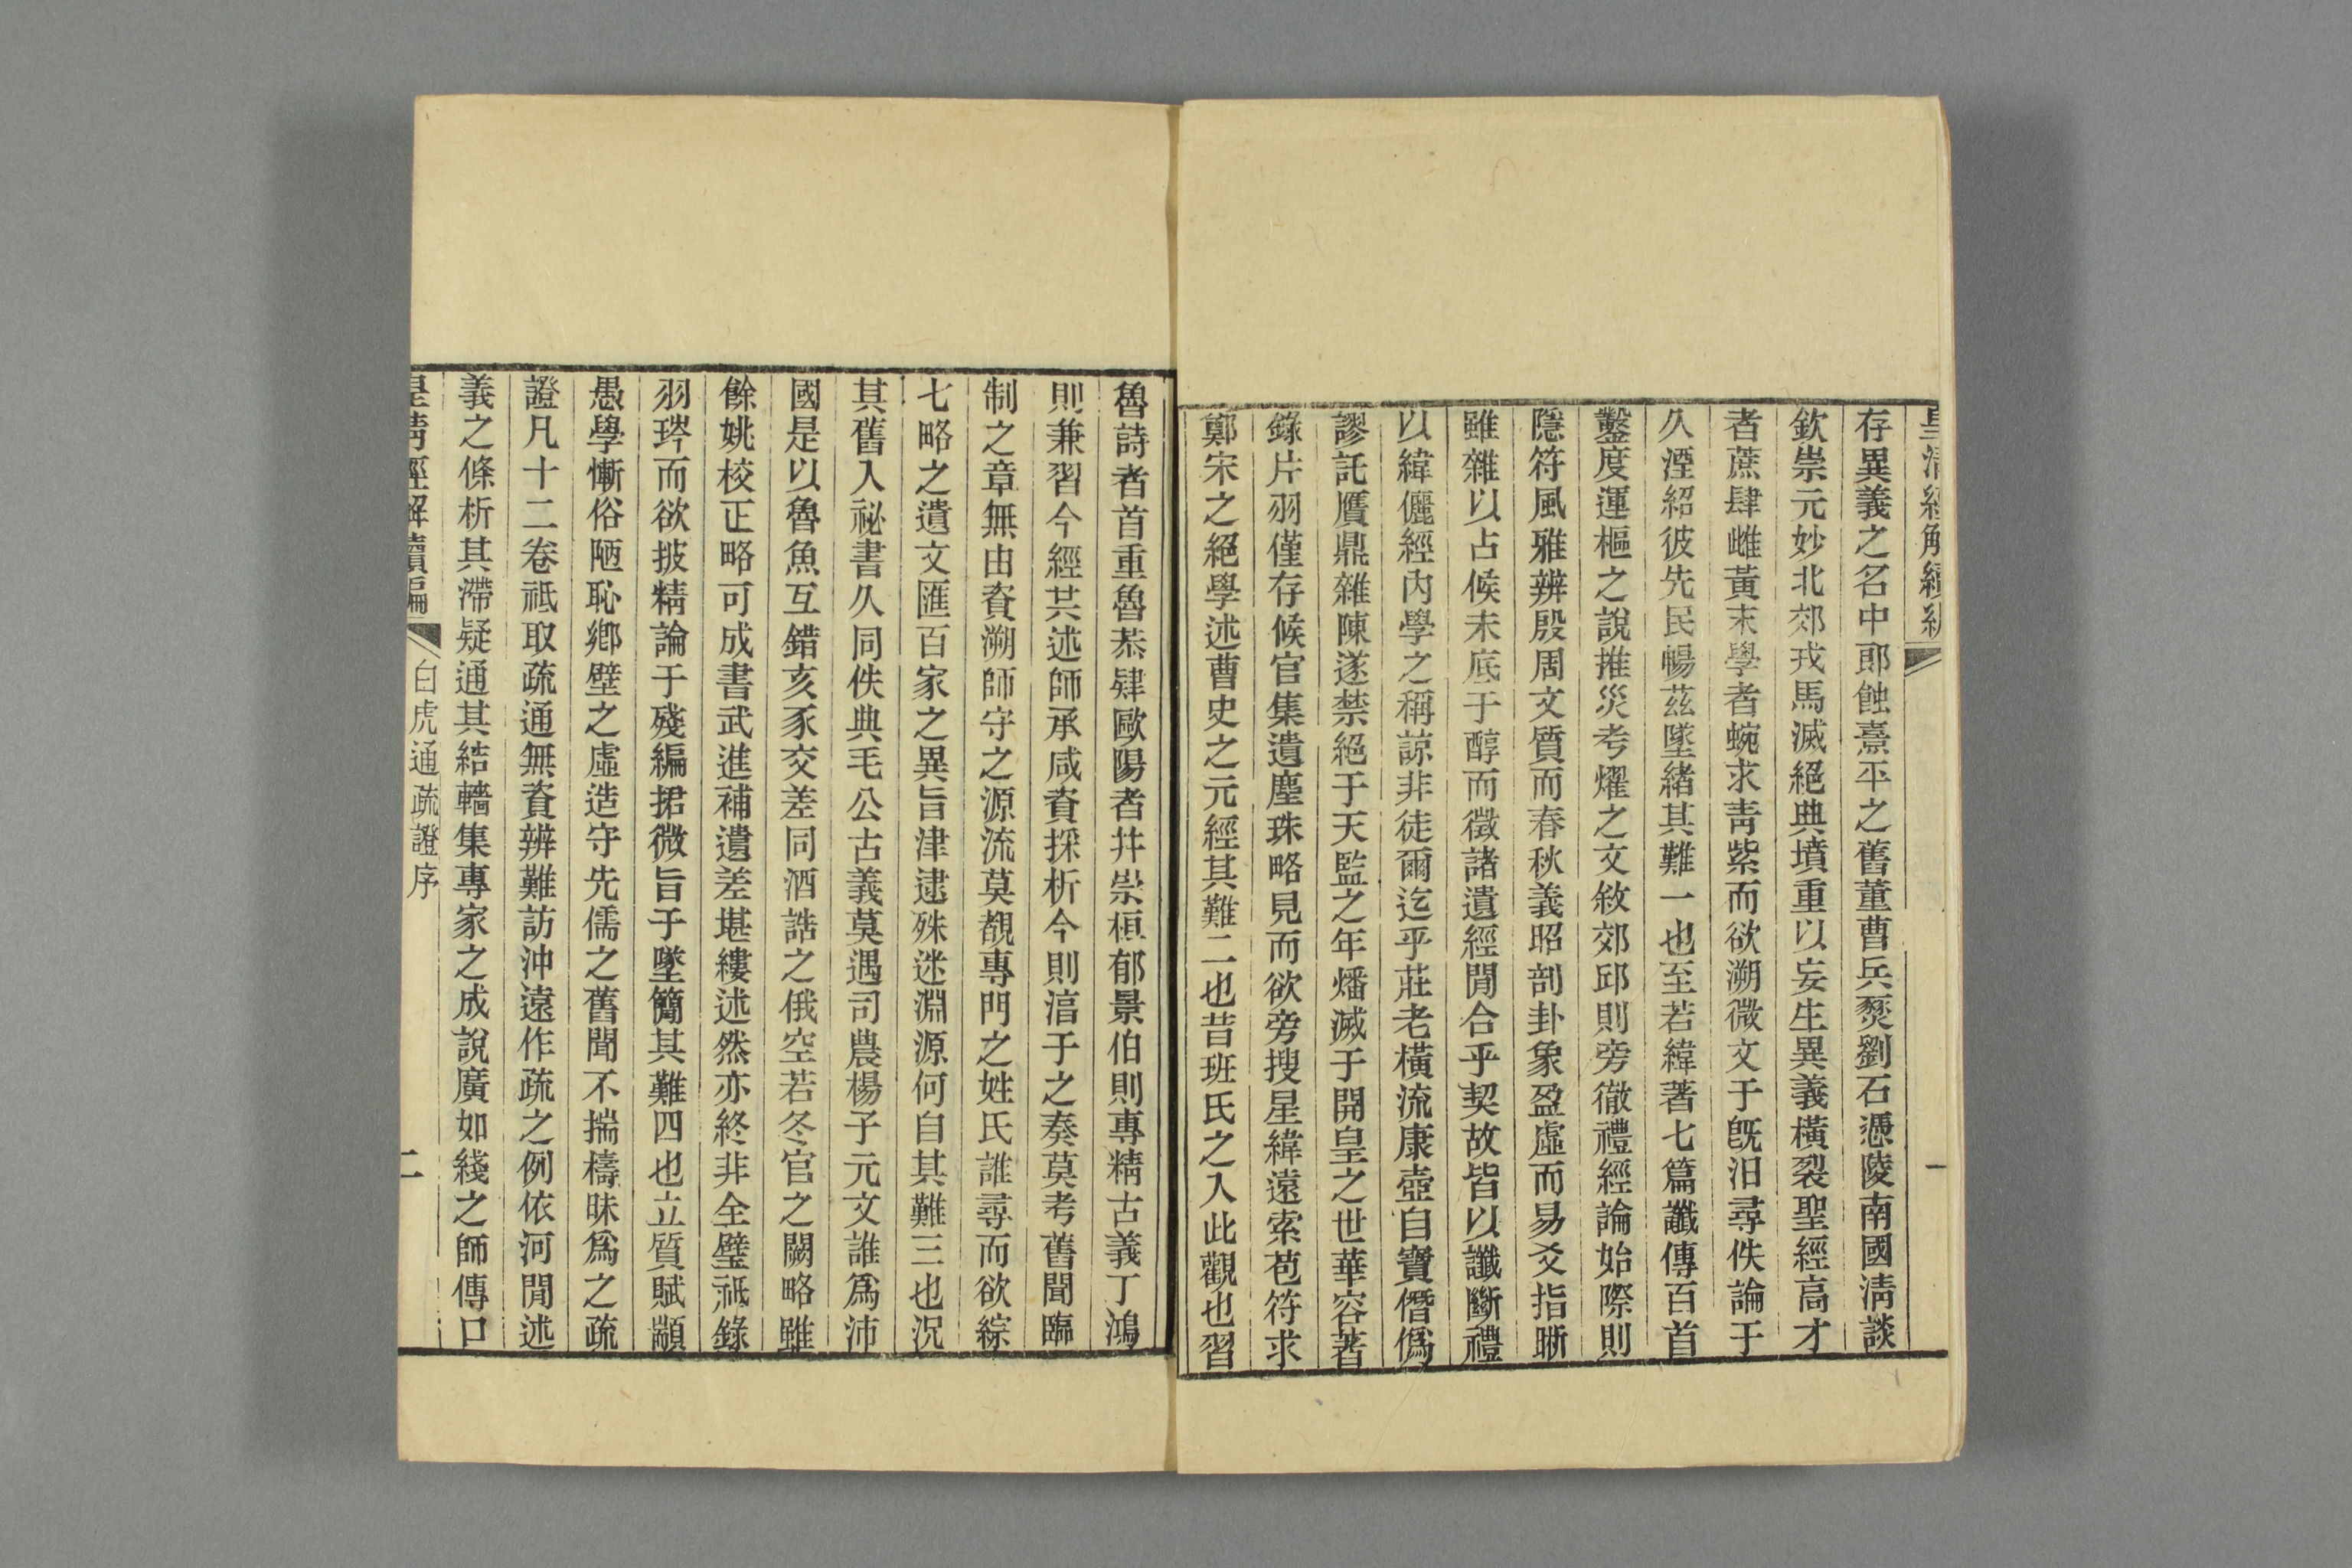 皇清經解續編
一
存異義之名中郎蝕熹平之舊董曹兵燹劉石憑陵南國淸談
欽崇元妙北郊戎馬滅絕典墳重以妄生異義橫裂聖經高才
者蔗肆雌黃末學者蜿求靑紫而欲溯微文于旣汨尋佚論于
久湮紹彼先民暢茲墜緒其難一也至若緯著七篇讖傳百首
鑿度運樞之說推災考燿之文敘郊邱則旁徹禮經論始際則
隱符風雅辨殷周文質而春秋義昭剖卦象盈虛而易爻指晰
雖雜以占候未底于醇而徵諸遺經閒合乎契故皆以讖斷禮
以緯儷經內學之稱諒非徒爾迄乎莊老橫流康壺自寶僭僞
謬託贋鼎雜陳遂禁絕于天監之年燔滅于開皇之世華容著
錄片羽僅存候官集遺塵珠略見而欲旁搜星緯遠索苞符求
鄭宋之絕學述曹史之元經其難二也昔班氏之入此觀也習
魯詩者首重魯恭肄歐陽者幷崇桓郁景伯則專精古義丁鴻
則兼習今經共述師承咸資採析今則湻于之奏莫考舊聞臨
制之章無由資溯師守之源流莫覩專門之姓氏誰尋而欲綜
七略之遺文匯百家之異旨津逮殊迷淵源何自其難三也況
其舊入祕書久同佚典毛公古義莫遇司農楊子元文誰爲沛
國是以魯魚互錯亥豕交差同酒誥之俄空若冬官之闕略雖
餘姚校正略可成書武進補遺差堪縷述然亦終非全璧祗錄
羽琌而欲披精論于殘編捃微旨于墜簡其難四也立質賦顓
愚學慚俗陋恥鄉壁之虛造守先儒之舊聞不揣檮昧爲之疏
證凡十二卷祗取疏通無資辨難訪沖遠作疏之例依河閒述
義之條析其滯疑通其結轖集專家之成說廣如綫之師傳口
皇淸經解續編
白虎通疏證序
二